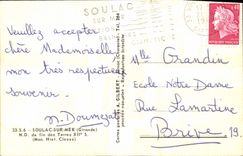 SOULAC
SUR MER
Veuillez accepter
chère Mademoiselle
mon très respectueux
souvenir.
33.5.6 - SOULAC-SUR-MER (Gironde)
N.D. de fin des Terres XIIe S.
(Mon. Hist. Classé)
Mlle Grandin
Ecole Notre Dame
Rue Lamartine
Brive 19.